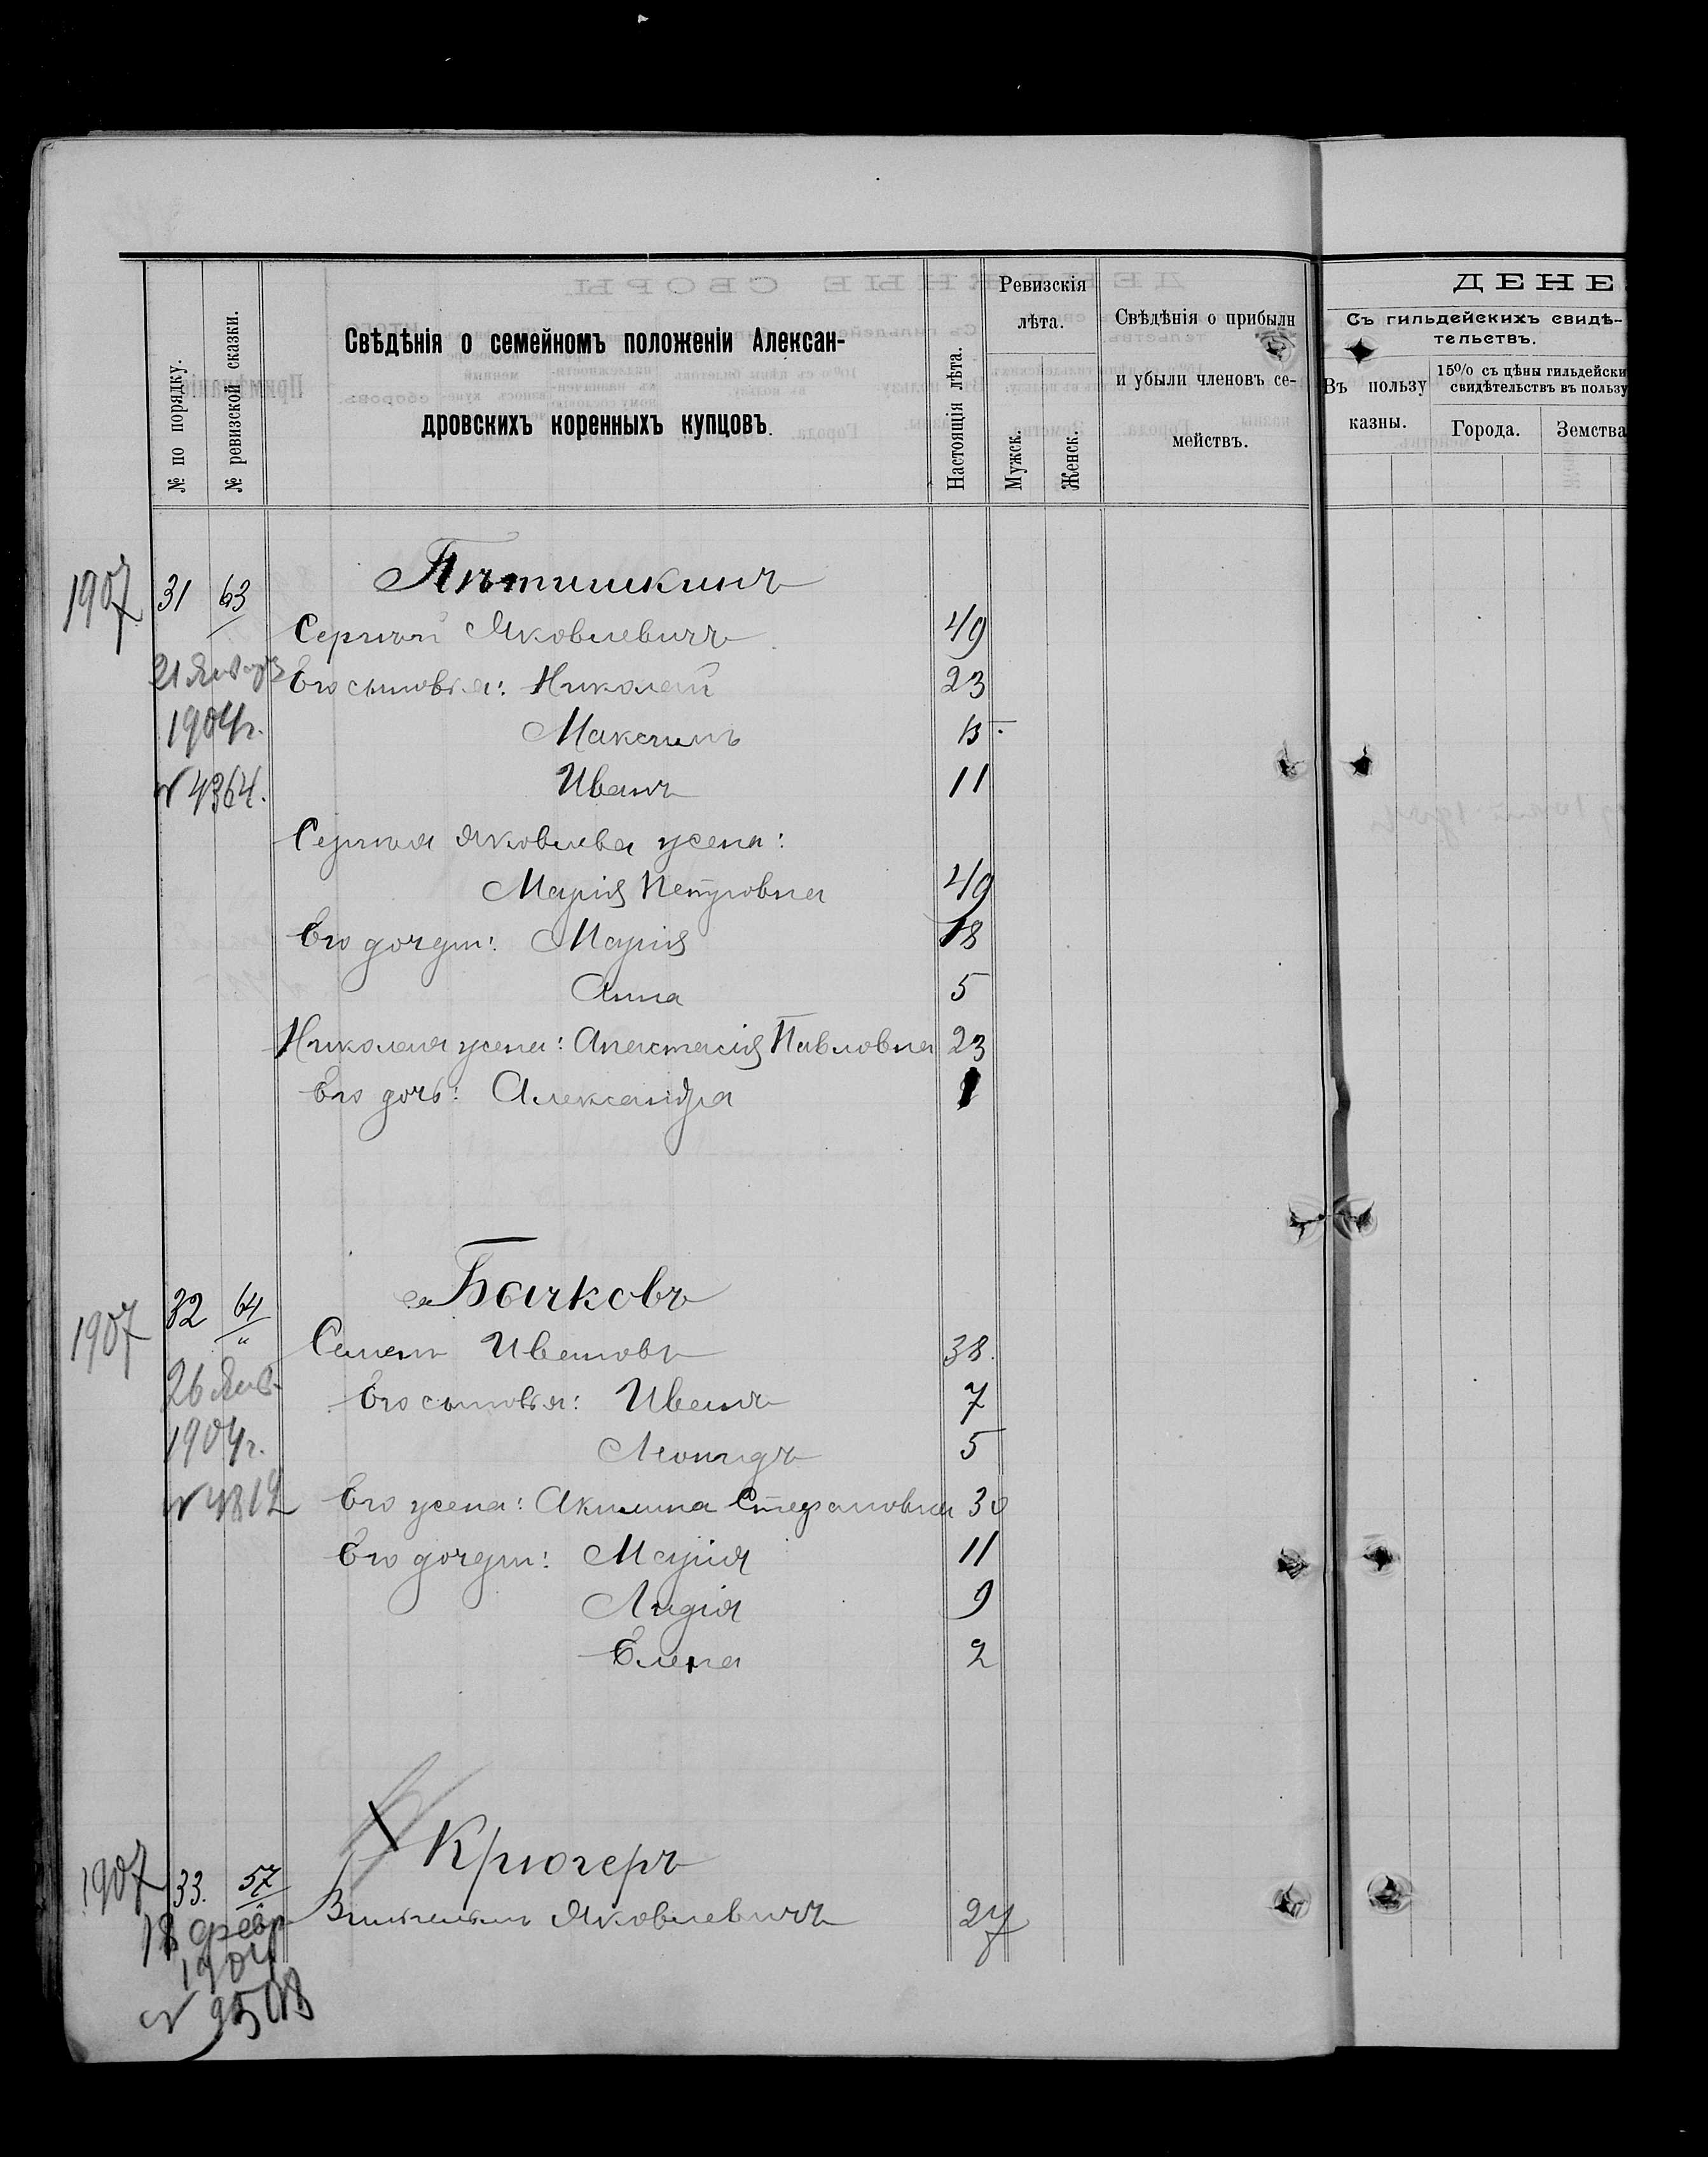 № по порядку.
№ ревизской сказки.
Свѣдѣнія о семейномъ положеніи Алексан-
дровскихъ коренныхъ купцовъ.
Настоящія лѣта.
Ревизскія
лѣта.
Мужск.
Женск.
Свѣдѣнія о прибыли
и убыли членовъ се-
мействъ.
ДЕНЕ
Съ гильдейскихъ свидѣ-
тельствъ.
Въ пользу
казны.
15% съ цѣны гильдейски
свидѣтельствъ въ пользу
Города.
Земства
1907 31 63 Пѣтишкинъ
Сергѣй Яковлевичъ 49
21 Января Его сыновья: Николай 23
1904г. Максимъ 15
№ 4364. Иванъ 11
Сергѣя Яковлева жена:
Марія Петровна 49
Его дочери: Марія 18
Анна 5
Николая жена: Анастасія Павловна 23
Его дочь: Александра 1
1907 32 64 Бачковъ
Семенъ Ивановъ 38.
26 Янв. Его сыновья: Иванъ 7
1904г. Леонидъ 5
№ 4812 Его жена: Акилина Стефановна 30
Его дочери: Марія 11
Лидія 9
Елена 2
1907 33. 57 Крюгеръ
18 февр Вильгельмъ Яковлевичъ
1904
№ 9508